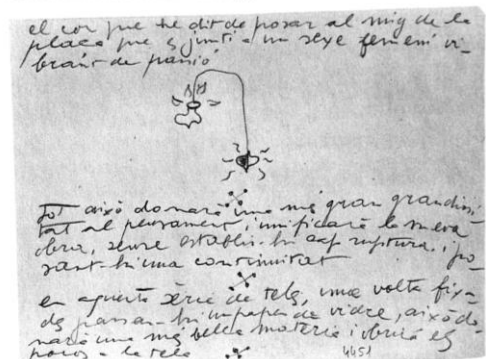 el cor que he dit de posar al mig de la
plaça que s'junti a un sexe femení vi-
brant de passió
Tot això donarà una més gran grandiosi-
tat al pensament, unificarà la meva
obra, sense establir-hi cap ruptura, po-
sant-hi una continuitat
en aquesta sèrie de tela, una volta fixa-
da passar-hi un paper de vidre, això do-
narà una més bella matèria i obrirà els
poros a la tela
4451